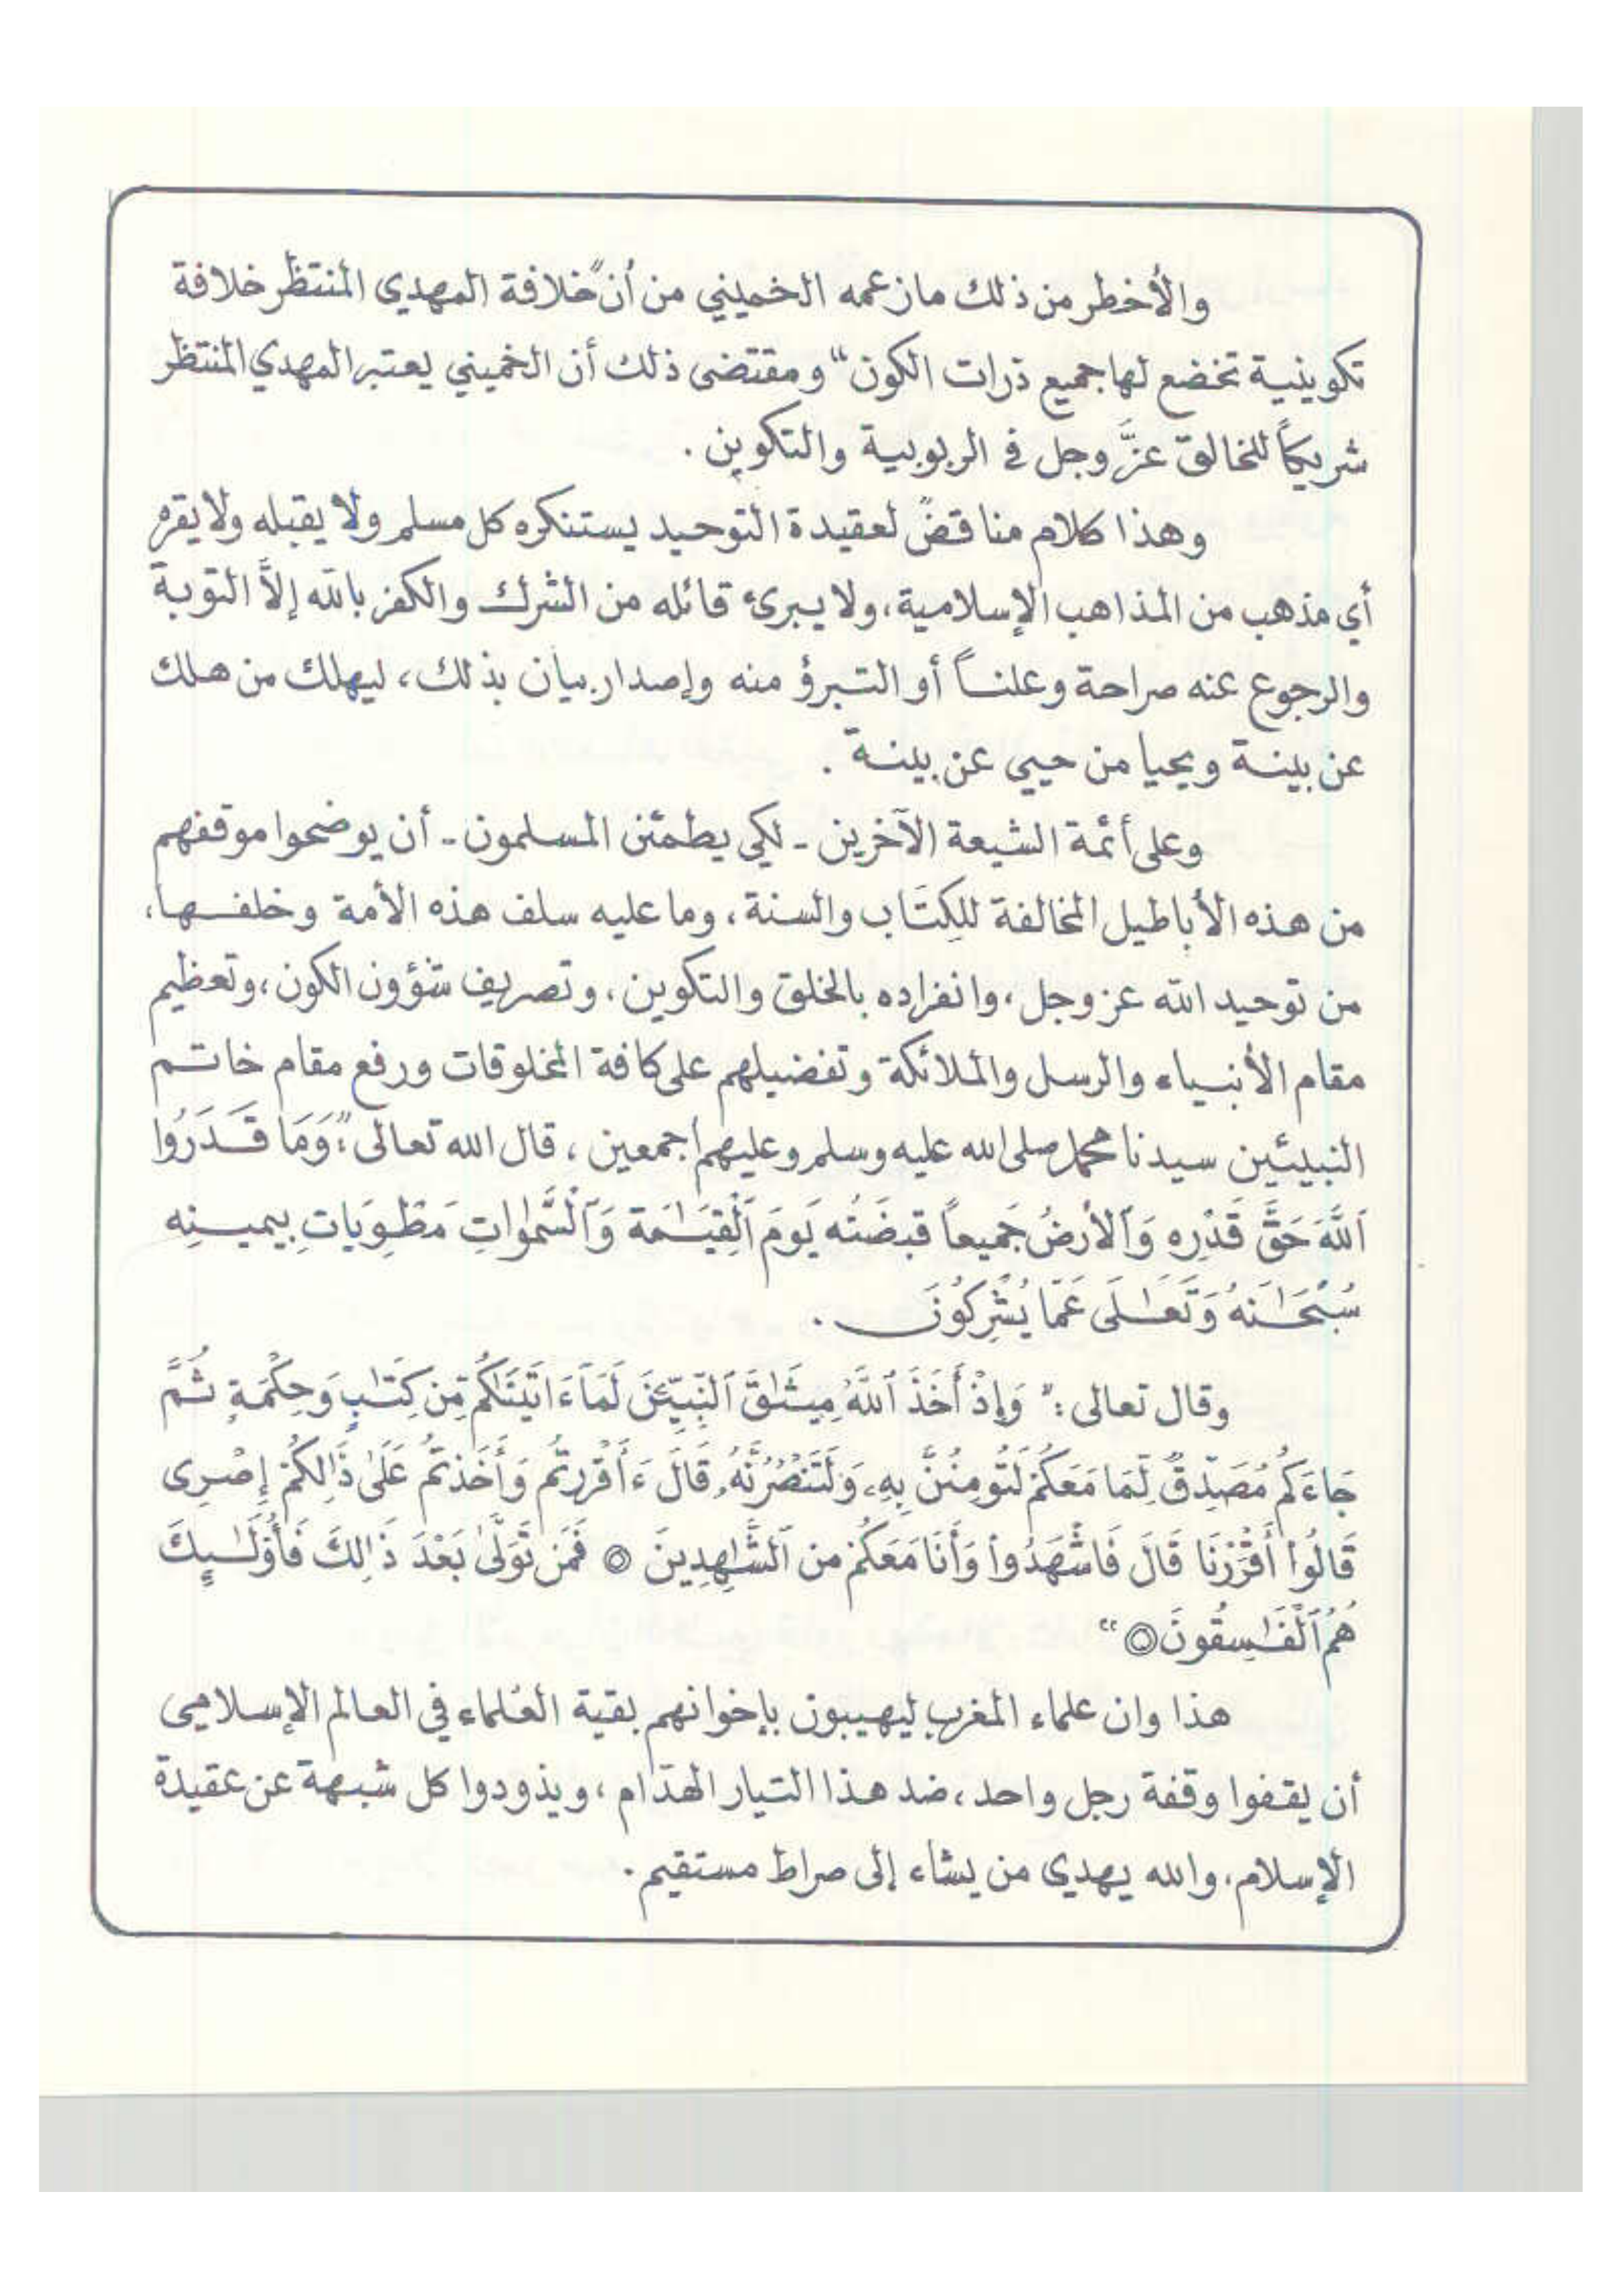 والأخطر من ذلك ما زعمه الخميني من أن "خلافة المهدي المنتظر خلافة
تكوينية تخضع لها جميع ذرات الكون" ومقتضى ذلك أن الخميني يعتبر المهدي المنتظر
شريكاً للخالق عزَّ وجل في الربوبية والتكوين .
وهذا كلام مناقضٌ لعقيدة التوحيد يستنكره كل مسلم ولا يقبله ولا يقره
أي مذهب من المذاهب الإسلامية، ولا يبرئ قائله من الشرك والكفر بالله إلاَّ التوبة
والرجوع عنه صراحة وعلنـاً أو التبرؤ منه وإصدار بيان بذلك، ليهلك من هلك
عن بينـة ويحيا من حيي عن بينـة .
وعلى أئمة الشيعة الآخرين - لكي يطمئن المسلمون - أن يوضحوا موقفهم
من هذه الأباطيل المخالفة للكتاب والسنة، وما عليه سلف هذه الأمة وخلفـها،
من توحيد الله عز وجل، وانفراده بالخلق والتكوين، وتصريف شؤون الكون، وتعظيم
مقام الأنبياء والرسل والملائكة وتفضيلهم على كافة المخلوقات ورفع مقام خاتـم
النبيئين سيدنا محمد صلى الله عليه وسلم وعليهم أجمعين، قال الله تعالى: "وَمَا قَـدَرُوا
ٱللَّهَ حَقَّ قَدْرِه وَٱلأرضُ جَميعاً قبضَتُه يَومَ ٱلْقِيَـٰمَة وَٱلسَّمٰوات مَطْوِيَات بِيمينِه
سُبْحَـٰنَهُ وَتَعَـٰلَى عَمّا يُشْرِكُونَ .
وقال تعالى : " وَإِذْ أَخَذَ ٱللَّهُ مِيثَـٰقَ ٱلنَّبِيِّئنَ لَمَآ ءَاتَيْنَـٰكُم مِّن كِتَـٰبٍ وَحِكْمَةٍ ثُمَّ
جَاءَكُم مُصَدِّقٌ لِّمَا مَعَكُمْ لَتُومِنُنَّ بِهِ، وَلَتَنْصُرُنَّهُ، قَالَ ءَأَقْرَرتُم وَأَخَذتُم عَلَىٰ ذَٰلِكُمْ إِصْرِى
قَالُوٓا أَقْرَرْنَا قَالَ فَاشْهَدُوا وَأَنَا مَعَكُمْ من ٱلشَّـٰهِدِينَ ◎ فَمَن تَوَلَّىٰ بَعْدَ ذَٰلِكَ فَأُوْلَـٰئِكَ
هُمُ ٱلْفَـٰسِقُونَ ◎ "
هذا وان علماء المغرب ليهيبون بإخوانهم بقية العُلماء في العالم الإسلامي
أن يقفوا وقفة رجل واحد، ضد هذا التيار الهدّام، ويذودوا كل شبهة عن عقيدة
الإسلام، والله يهدي من يشاء إلى صراط مستقيم .